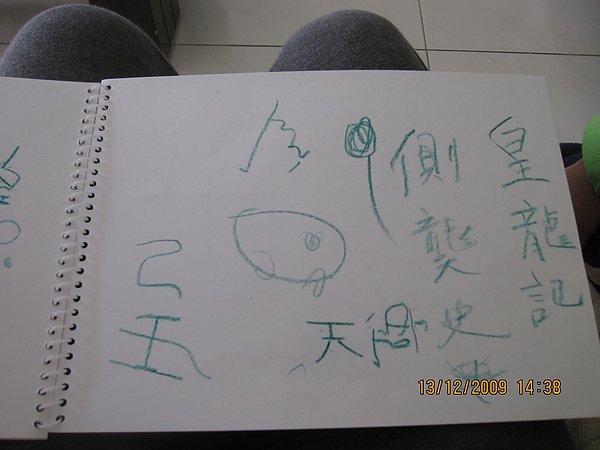 皇龍記
側襲史
天
己
五
13/12/2009 14:38